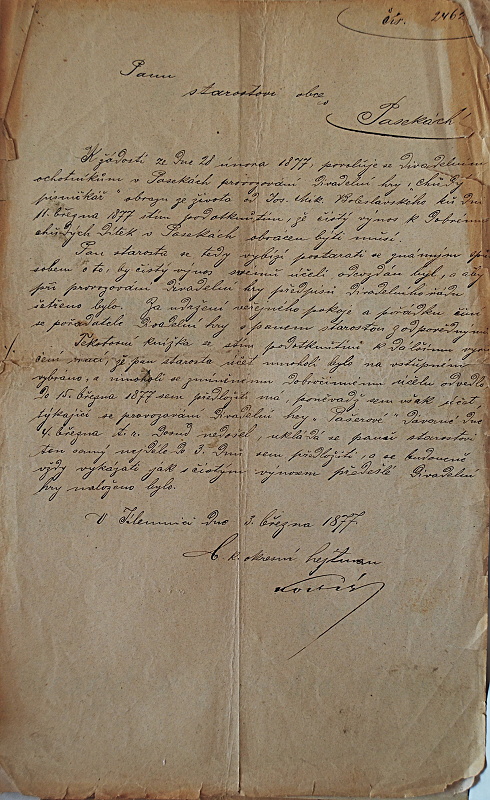 čís. 246
Panu
starostovi obce
Pasekách!
K žádosti ze dne 28 února 1877, povoluje se divadelním
ochotníkům v Pasekách provozování divadelní hry „Chudý
písničkář" obrazu ze života od Jos. Mik. Boleslavského ku dni
11. března 1877 s tím podotknutím, že čistý výnos k dobrému
chudých dítek v Pasekách obrácen býti musí.
Pan starosta se tedy vybízí postarati se známým způ
sobem o to, by čistý výnos svému účeli odevzdán byl, a aby
při provozování divadelní hry předpisů divadelního řádu
šetřeno bylo. Za udržení veřejného pokoje a pořádku činí
se pořadatelé divadelní hry s panem starostou zodpovědnými
Tekutorní knížka se s tím podotknutím k dalšímu
cení vrací, že pan starosta účet mnoholi bylo na vstupném
vybráno, a mnoholi se zmíněnému dobročinnému účelu odvedlo
do 15. března 1877 sem předložiti má, poněvadž sem však účet
týkající se provozování divadelní hry „Pašerové" davané dne
4. března t. r. dosud nedošel, ukládá se panu starostovi
ten samý nejdéle do 3. dnů sem předložiti, a se budoucně
vždy vykázati jak s čistým výnosem předešlé divadelní
hry naloženo bylo.
V Jilemnici dne 3. března 1877.
C. k. okresní hejtman